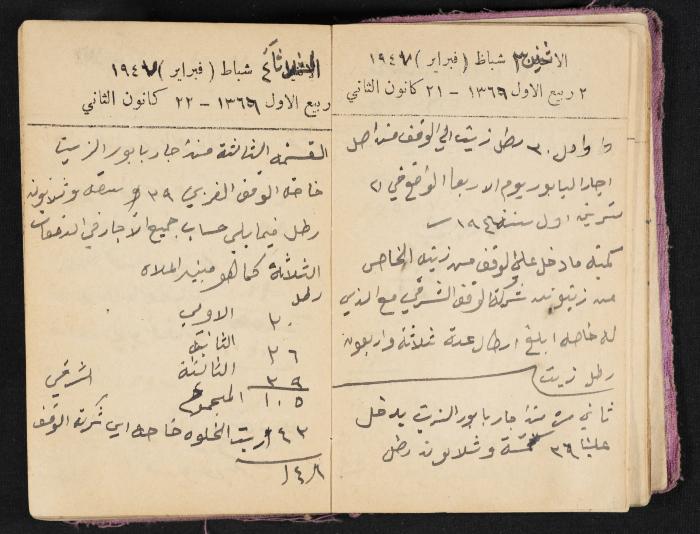 الاثنين ٣ شباط ( فبراير ) ١٩٤٧
٢ ربيع الاول ١٣٦٦ – ٢١ كانون الثاني
٣٠ رطل زيت الى الوقف من اصل
اجار البابور يوم الاربعا الواقع في
تشرين اول سنة ١٩٤
كمية ما دخل على الوقف من زيته الخاص
من زيتون شركة الوقف الشرقي مع الذي
له خاصه ابلغ ارطال عدة ثلاثة واربعون
رطل زيت
ثاني مرة من اجار بابور الزيت يدخل
علينا ٣٦ ستة وثلاثون رطل
الثلاثاء ٤ شباط ( فبراير ) ١٩٤٧
ربيع الاول ١٣٦٦ – ٢٢ كانون الثاني
القسمة الثالثة من اجار بابور الزيت
خاصة الوقف الغربي ٣٩ تسعة وثلاثون
رطل فيما يلي حساب جميع الاجار في الدفعات
الثلاثة كما هو مبين اعلاه
رطل
٣٠ الاولى
٣٦ الثانية
٣٩ الثالثة
١٠٥ المجموع
الشرقي
٤٣ زيت الخلوه خاصه اي شركة الوقف
١٤٨